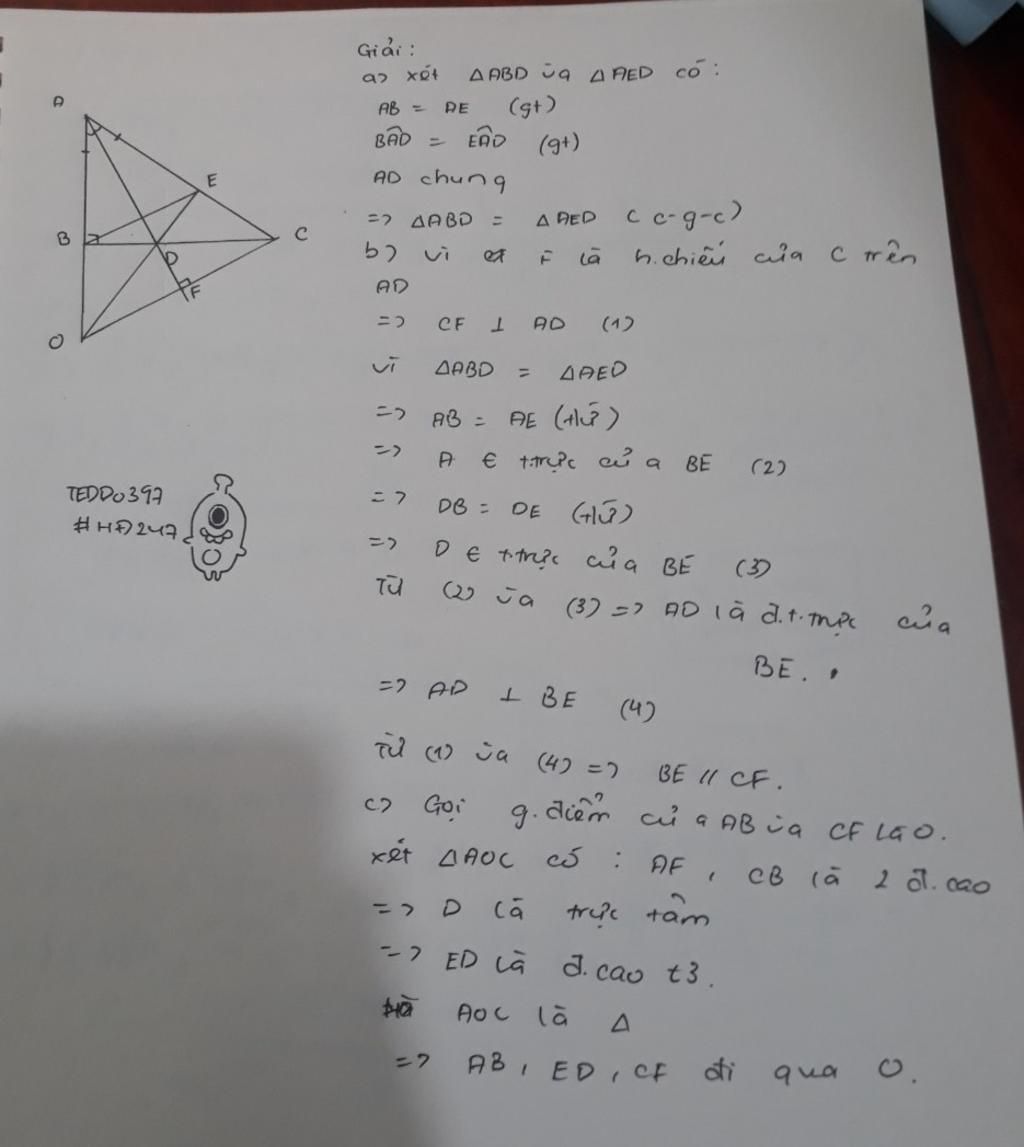 Giải:
a) xét ΔABD và ΔAED có:
AB = AE (gt)
BÂD = EÂD (gt)
AD chung
=> ΔABD = ΔAED (c-g-c)
b) vì F là h.chiếu của C trên
AD
=> CF ⊥ AD (1)
vì ΔABD = ΔAED
=> AB = AE (t/ứ)
=> A ∈ t.trực của BE (2)
=> DB = DE (t/ứ)
=> D ∈ t.trực của BE (3)
Từ (2) và (3) => AD là đ.t.trực của
BE.
=> AD ⊥ BE (4)
Từ (1) và (4) => BE // CF.
c) Gọi g.điểm của AB và CF là O.
xét ΔAOC có : AF, CB là 2 đ.cao
=> D là trực tâm
=> ED là đ.cao t3.
AOC là Δ
=> AB, ED, CF đi qua O.
A
E
B
C
D
F
O
TEDD0397
#HĐ247